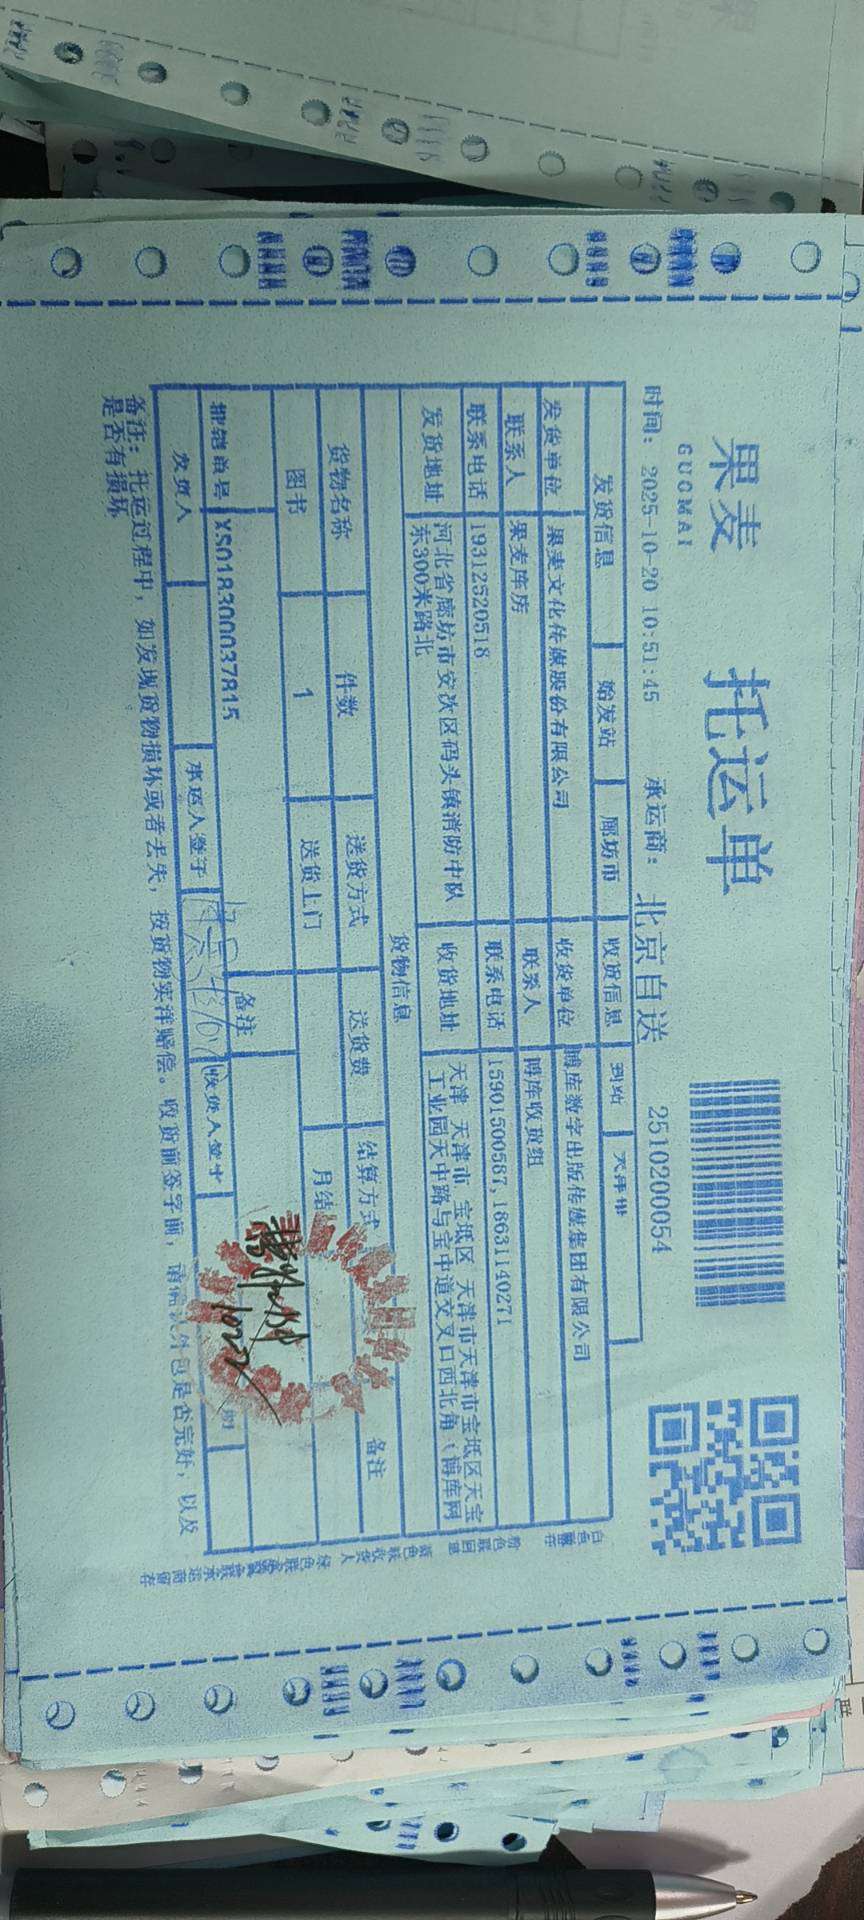 果麦
GUOMAI
托运单
时间：2025-10-20 10:51:45 承运商：北京自送 2510200054
发货信息 始发站 廊坊市 收货信息 到站 天津市
发货单位 果麦文化传媒股份有限公司 收货单位 博库数字出版传媒集团有限公司
联系人 果麦库房 联系人 博库收货组
联系电话 19312520518 联系电话 15901500587,18631140271
发货地址 河北省廊坊市安次区码头镇消防中队东300米路北 收货地址 天津 天津市 宝坻区 天津市天津市宝坻区天宝工业园天中路与宝中道交叉口西北角（博库网
货物信息
货物名称 件数 送货方式 送货费 结算方式 备注
图书 1 送货上门 月结
批销单号 XS018300037815 备注
发货人 承运人签字 收货人签字
备注：托运过程中，如发现货物损坏或者丢失，按货物实洋赔偿。收货前签字前，请确认外包是否完好，以及
是否有损坏